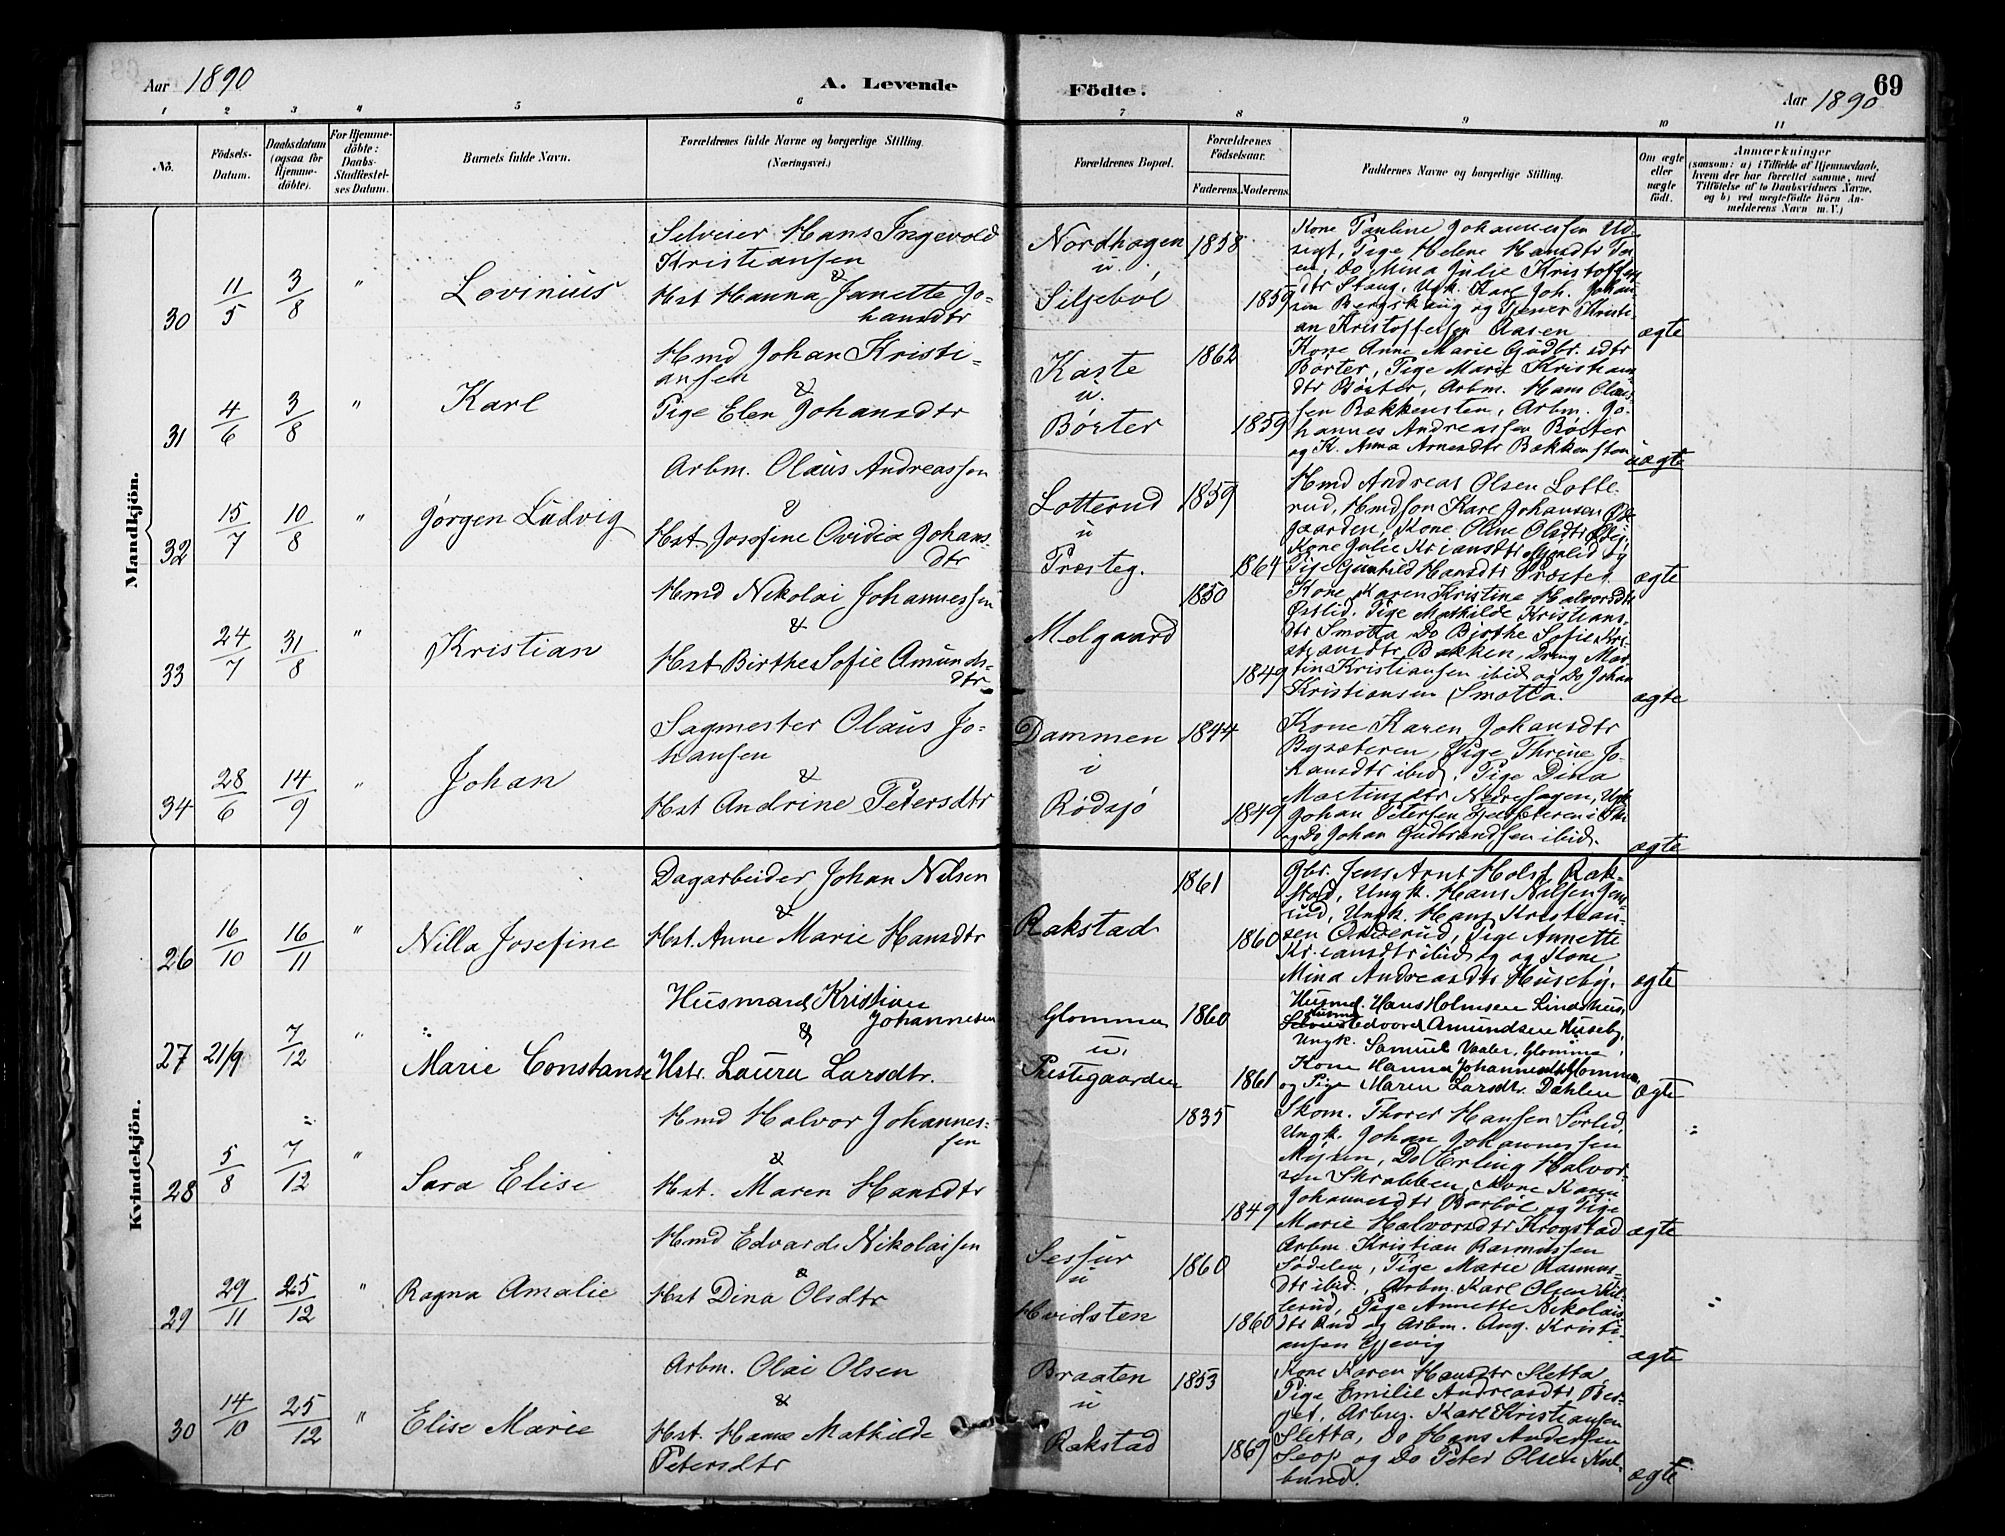 Aar 1890
A. Levende
Fødte.
69
Aar 1890
1 2 3 4 5 6 7 8 9 10 11
No.
Födsels-
Datum.
Daabsdatum
(ogsaa for
Hjemme-
döbte).
For Hjemme-
döbte:
Daabs-
Stadfæstel-
ses Datum.
Barnets fulde Navn.
Forældrenes fulde Navne og borgerlige Stilling.
(Næringsvei.)
Forældrenes Bopæl.
Forældrenes
Födselsaar.
Faderens.
Moderens.
Faddernes Navne og borgerlige Stilling.
Om ægte
eller
uægte
födt.
Anmærkninger
(saasom: a) i Tilfælde af Hjemmedaab,
hvem der har forrettet samme, med
Tilföielse af to Daabsvidners Navne,
og b) ved uægtefödte Börn An-
melderens Navn m. V.)
Mandkjön.
30
11/5
3/8
"
Lovinius
Selveier Hans Ingevold
Kristiansen
&
Hst Hanna Janette Jo-
hansdtr
Nordhagen
u.
Siljeböl
1858
1859
Kone Pauline Johannessen Ud-
sigt, Pige Helene Hansdtr
Do Mina Julie Kristoffers
dtr Stang, Ungk. Karl Joh. Johan
sen Bergskaug og Tjener Kristi-
an Kristoffersen Aasen
ægte
31
4/6
3/8
"
Karl
Hmd Johan Kristi-
ansen
&
Pige Elen Johansdtr
Kaste
u.
Börter
1862
1859
Kone Anne Marie Gudbr.sdtr
Börter, Pige Marie Kristians
dtr Börter, Arbm. Hans Olaus-
sen Bækkensten, Arbm. Jo-
hannes Andreassen Börter
og K. Anna Arnesdtr Bækkensten
uægte
32
15/7
10/8
"
Jørgen Ludvig
Arbm. Olaus Andreassen
&
Hst. Josefine Ovidia Johans-
dtr
Lotterud
u
Præsteg.
1859
1864
Hmd Andreas Olsen Lotte-
rud, Hmdsön Karl Johansen Øde-
gaarden, Kone Oline Olsdtr Ødeg.,
Kone Julie Kr.iansdtr og
Pige Gunhild Hansdtr Præsteg.
ægte
33
24/7
31/8
"
Kristian
Hmd Nikolai Johannessen
&
Hst Birthe Sofie Amunds-
dtr
Melgaard
1850
1849
Kone Karen Kristine Halvorsdtr
Østlid, Pige Mathilde Kristians-
dtr Smotta, Do Birthe Sofie Kri-
stiansdtr Bakken, Dreng Mar-
tin Kristiansen ibid og Do Johan
Kristiansen Smotta.
ægte
34
28/6
14/9
"
Johan
Sagmester Olaus Jo-
hansen
&
Hst Andrine Petersdtr
Dammen
i
Rødsjø
1844
1849
Kone Karen Johansdtr
Bysæteren, Pige Thrine Jo-
hansdtr ibid, Pige Dina
Martinsdtr Nedrehagen, Ungk.
Johan Petersen
og Do Johan Gudbrandsen ibid.
ægte
Kvindekjön.
26
16/10
16/11
"
Nilla Josefine
Dagarbeider Johan Nilsen
&
Hst. Anne Marie Hansdtr
Rakstad
1861
1860
Gbr. Jens Arnt Holst Rak-
stad, Ungk. Hans Nilsen Jen-
srud, Ungk. Hans Kristian-
sen Anderud, Pige Annette
Kr.iansdtr ibid og Kone
Mina Andreasdtr Huseby.
ægte
27
21/9
7/12
"
Marie Constanse
Husmand Kristian
Johannesen
&
Hstr. Laura Larsdtr.
Glomma
u.
Prestegaarden
1860
1861
Husmd. Hans Holmsen Lindshus,
Husmd Edvard Amundsen Huseby,
Ungk. Samuel Vaaler, Glomma,
Kone Hanna Johannesdtr Glomma
og Pige Maren Larsdtr. Dahlen
ægte
28
5/8
7/12
"
Sara Elise
Hmd Halvor Johannes-
sen
&
Hst. Maren Hansdtr
1835
1849
Skom. Thorer Hansen Sörlid,
Ungk. Johan Johannessen
Mysen, Do Erling Halvor-
sen Skrabben, Kone Karen
Johannesdtr Barböl og Pige
Marie Halvorsdtr Krogstad
ægte
29
29/11
25/12
"
Ragna Amalie
Hmd Edvard Nikolaisen
&
Hst Dina Olsdtr
Sessur
u
Hvidsten
1860
1860
Arbm. Kristian Rasmussen
Sødelen, Pige Marie Rasmus-
dtr ibid., Arbm. Karl Olsen Kil-
lerud, Pige Annette Nikolais
dtr Rud og Arbm. Aug. Kristi-
ansen Gjevig
ægte
30
14/10
25/12
"
Elise Marie
Arbm. Olai Olsen
&
Hst. Hanna Mathilde
Petersdtr
Braaten
u
Rakstad
1853
1869
Kone Karen Hansdtr Sletta,
Pige Emilie Andreasdtr Ber-
get, Arbm. Karl Kristiansen
Sletta, Do Hans Andersen
Seop og Do Peter Olsen Kul-
bund.
ægte